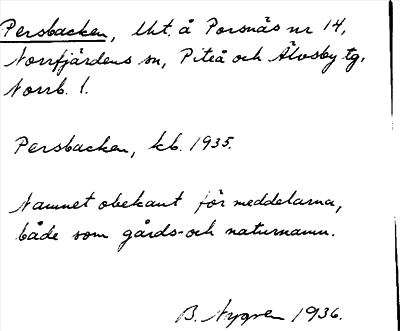 Persbacken, lht. å Porsnäs nr 14,
Norrfjärdens sn, Piteå och Älvsby tg.
Norrb. l.
Persbacken, kb. 1935.
Namnet obekant för meddelarna,
både som gårds- och naturnamn.
B. Nygren 1936.